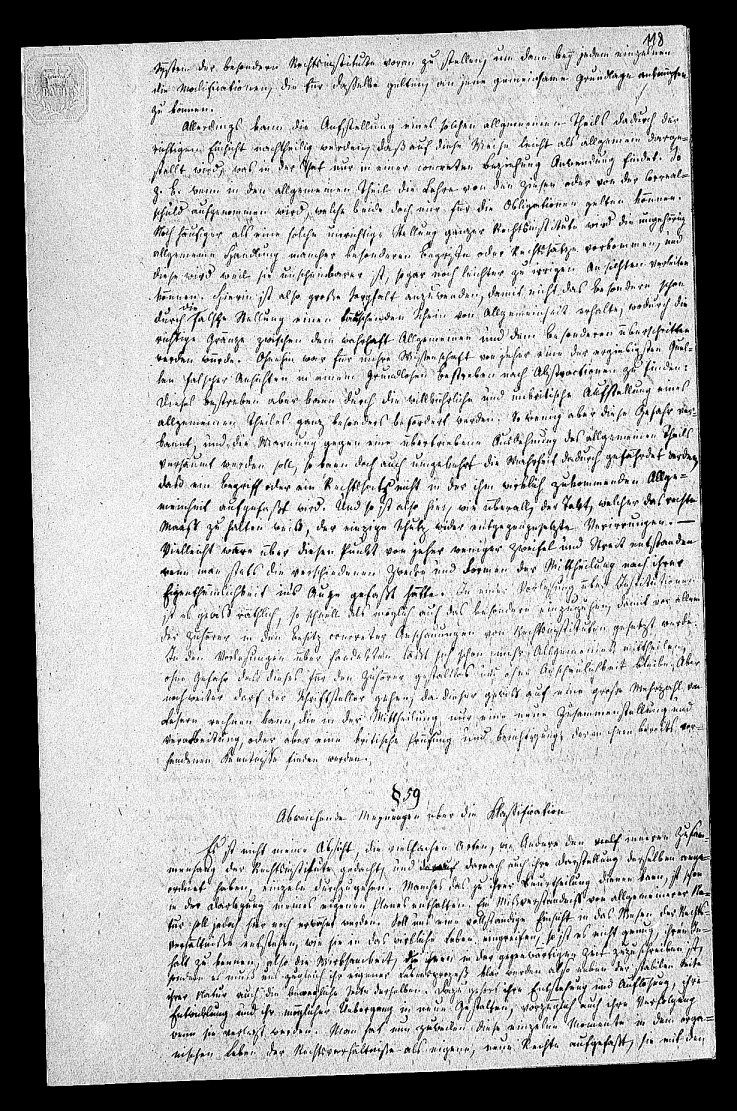 118
System der besondern Rechtsinstitute voran zu stellen, um dann bey jedem einzelnen
die Modificationen, die für dasselbe gelten, an jene gemeinsame Grundlage anknüpfen
zu können.
Allerdings kann die Aufstellung eines solchen allgemeinen Theils dadurch der
richtigen Einsicht nachtheilig werden, daß auf diese Weise leicht als allgemein darge-
stellt wird, was in der That nur in einer concreten Beziehung Anwendung findet. So
z. B. wenn in den allgemeinen Theil die Lehre von den Zinsen oder von der Correal-
schuld aufgenommen wird, welche beide doch nur für die Obligationen gelten können.
Noch häufiger als eine solche unrichtige Stellung ganzer Rechtsinstitute wird die
allgemeine Handlung mancher besonderen Begriffe oder Rechtssätze vorkommen, und
diese wird, weil sie unscheinbarer ist, sogar noch leichter zu irrigen Ansichten verleiten
können. Hierin ist also große Sorgfalt anzuwenden, damit nicht das besondere schon
durch die falsche Stellung einen täuschenden Schein von Allgemeinheit erhalte, wodurch die
richtige Gränze zwischen dem wahrhaft Allgemeinen und dem besonderen überschritten
werden würde. Ohnehin war für unsre Wissenschaft von jeher eine der ergiebigsten Quel-
len falscher Ansichten in einem grundlosen Bestreben nach Abstractionen zu finden:
dieses Bestreben aber kann durch die willkührliche und unkritische Aufstellung eines
allgemeinen Theiles ganz besonders befördert werden. So wenig aber diese Gefahr ver-
kannt, und die Warnung gegen eine übertriebene Ausdehnung des allgemeinen Theils
versäumt werden soll, so kann doch auch umgekehrt die Wahrheit dadurch gefährdet werden,
daß ein Begriff oder ein Rechtssatz nicht in der ihm wirklich zukommenden Allge-
meinheit aufgefaßt wird. Und so ist also hier, wie überall, der Takt, welcher das rechte
Maaß zu halten weiß, der einzige Schutz wider entgegengesetzte Verirrungen. —
Vielleicht wäre über diesen Punkt von jeher weniger Zweifel und Streit entstanden
wenn man stets die verschiedenen Zwecke und Formen der Mittheilung nach ihrer
Eigenthümlichkeit ins Auge gefaßt hätte. In einer Vorlesung über Institutionen
ist es gewiß räthlich, so schnell als möglich auf das besondere einzugehen, damit vor allem
der Zuhörer in den Besitz concreter Anschauungen von Rechtsinstituten gesetzt werde.
In den Vorlesungen über Pandekten läßt sich schon mehr Allgemeines mittheilen,
ohne Gefahr daß dieses für den Zuhörer gestaltlos und ohne Anschaulichkeit bleibe. Aber
noch weiter darf der Schriftsteller gehen, da dieser gewiß auf eine große Mehrzahl von
Lesern rechnen kann, die in der Mittheilung nur eine neue Zusammenstellung und
Verarbeitung, oder aber eine kritische Prüfung und der in ihnen bereits vor-
handenen Kenntnisse finden werden.
§ 59
Abweichende Meynungen über die Klassification
Es ist nicht meine Absicht, die vielfachen Arten, wie Andere den innern Zusam-
menhang der Rechtsinstitute gedacht, und darnach auch ihre Darstellung derselben ange-
ordnet haben, einzeln durchzugehen. Manches das zu ihrer Beurtheilung dienen kann, ist schon
in der Darlegung meines eigenen Planes enthalten. Ein Misverständniß von allgemeinerer Na-
tur soll jedoch hier noch erörtert werden. Soll uns eine vollständige Einsicht in das Wesen der Rechts-
verhältnisse entstehen, wie sie in das wirkliche Leben eingreifen, so ist es nicht genug, ihren In-
halt zu kennen, also die Wirksamkeit, die ihnen in der gegenwärtigen Zeit zuzuschreiben ist,
sondern es muß uns zugleich ihr eigener Lebensprozeß klar werden, also neben der stabilen Seite
ihrer Natur auch die bewegliche Seite derselben. Dazu gehört ihre Entstehung und Auflösung, ihre
Entwicklung und ihr möglicher Uebergang in neue Gestalten, vorzüglich auch ihre Verfolgung
wenn sie verletzt werden. Man hat nun zuweilen diese einzelne Momente in dem orga-
nischen Leben der Rechtsverhältnisse als eigene, neue Rechte aufgefaßt, sie mit den